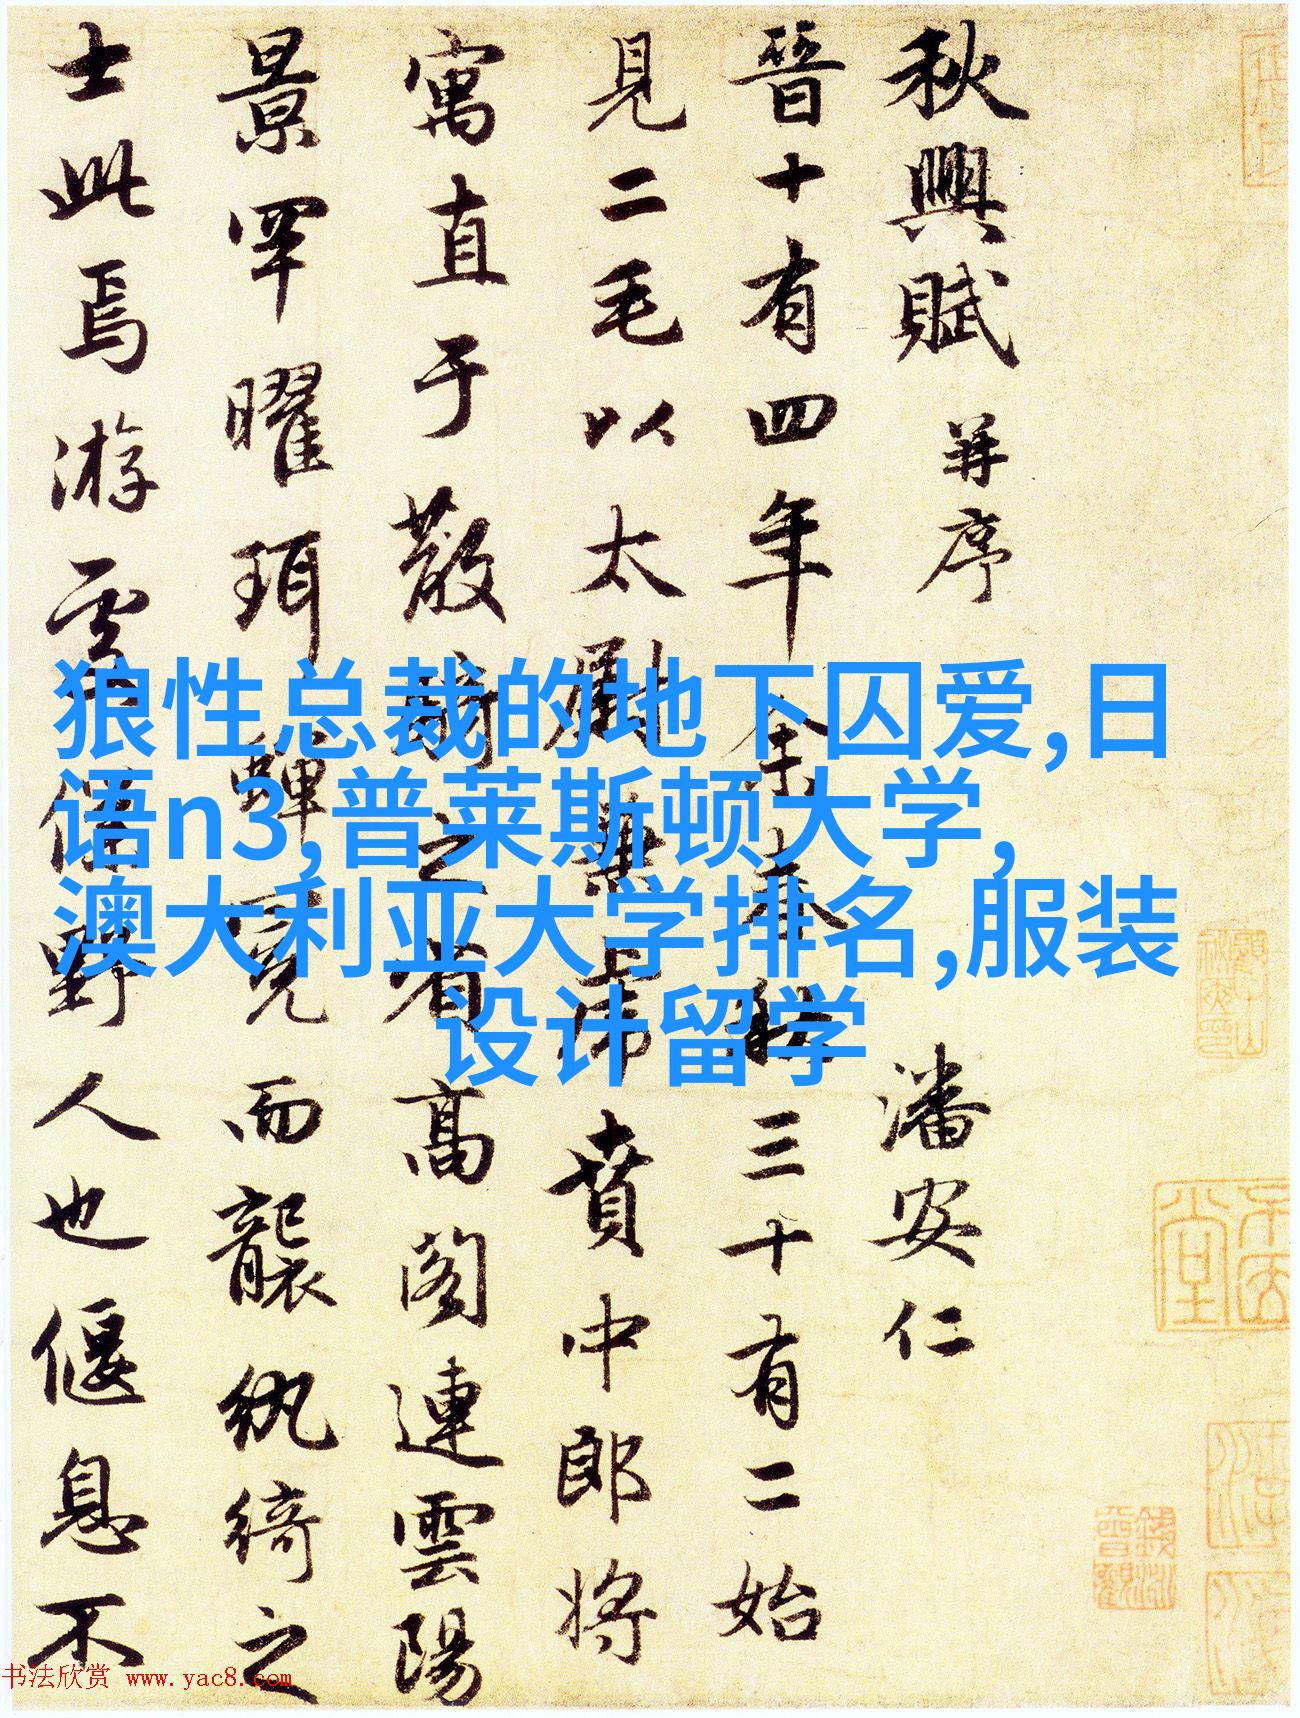 秋興賦 并序 潘安仁
晉十有四年余春秋三十有二始
見二毛以太尉兼虎賁中郎将
寓直于散騎之省高閣連雲陽
景罕曜珥蟬冕而襲紈綺之
士此焉游處僕野人也偃息不
狼性总裁的地下囚爱,日
语n3,普莱斯顿大学,
澳大利亚大学排名,服装
设计留学
书法欣赏 www.yac8.com